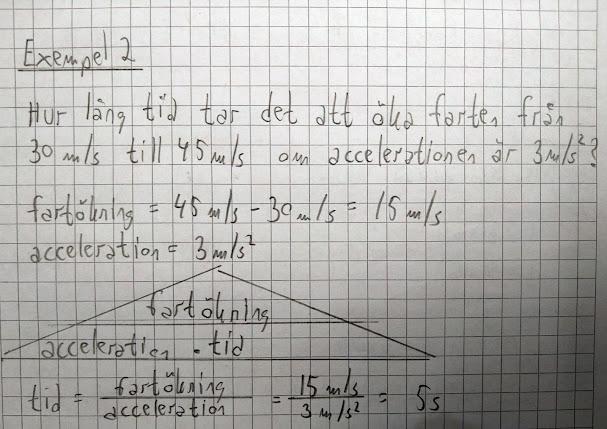 Exempel 2
Hur lång tid tar det att öka farten från
30 m/s till 45 m/s om accelerationen är 3 m/s²?
fartökning = 45 m/s - 30 m/s = 15 m/s
acceleration = 3 m/s²
fartökning
acceleration · tid
tid = fartökning / acceleration = 15 m/s / 3 m/s² = 5s